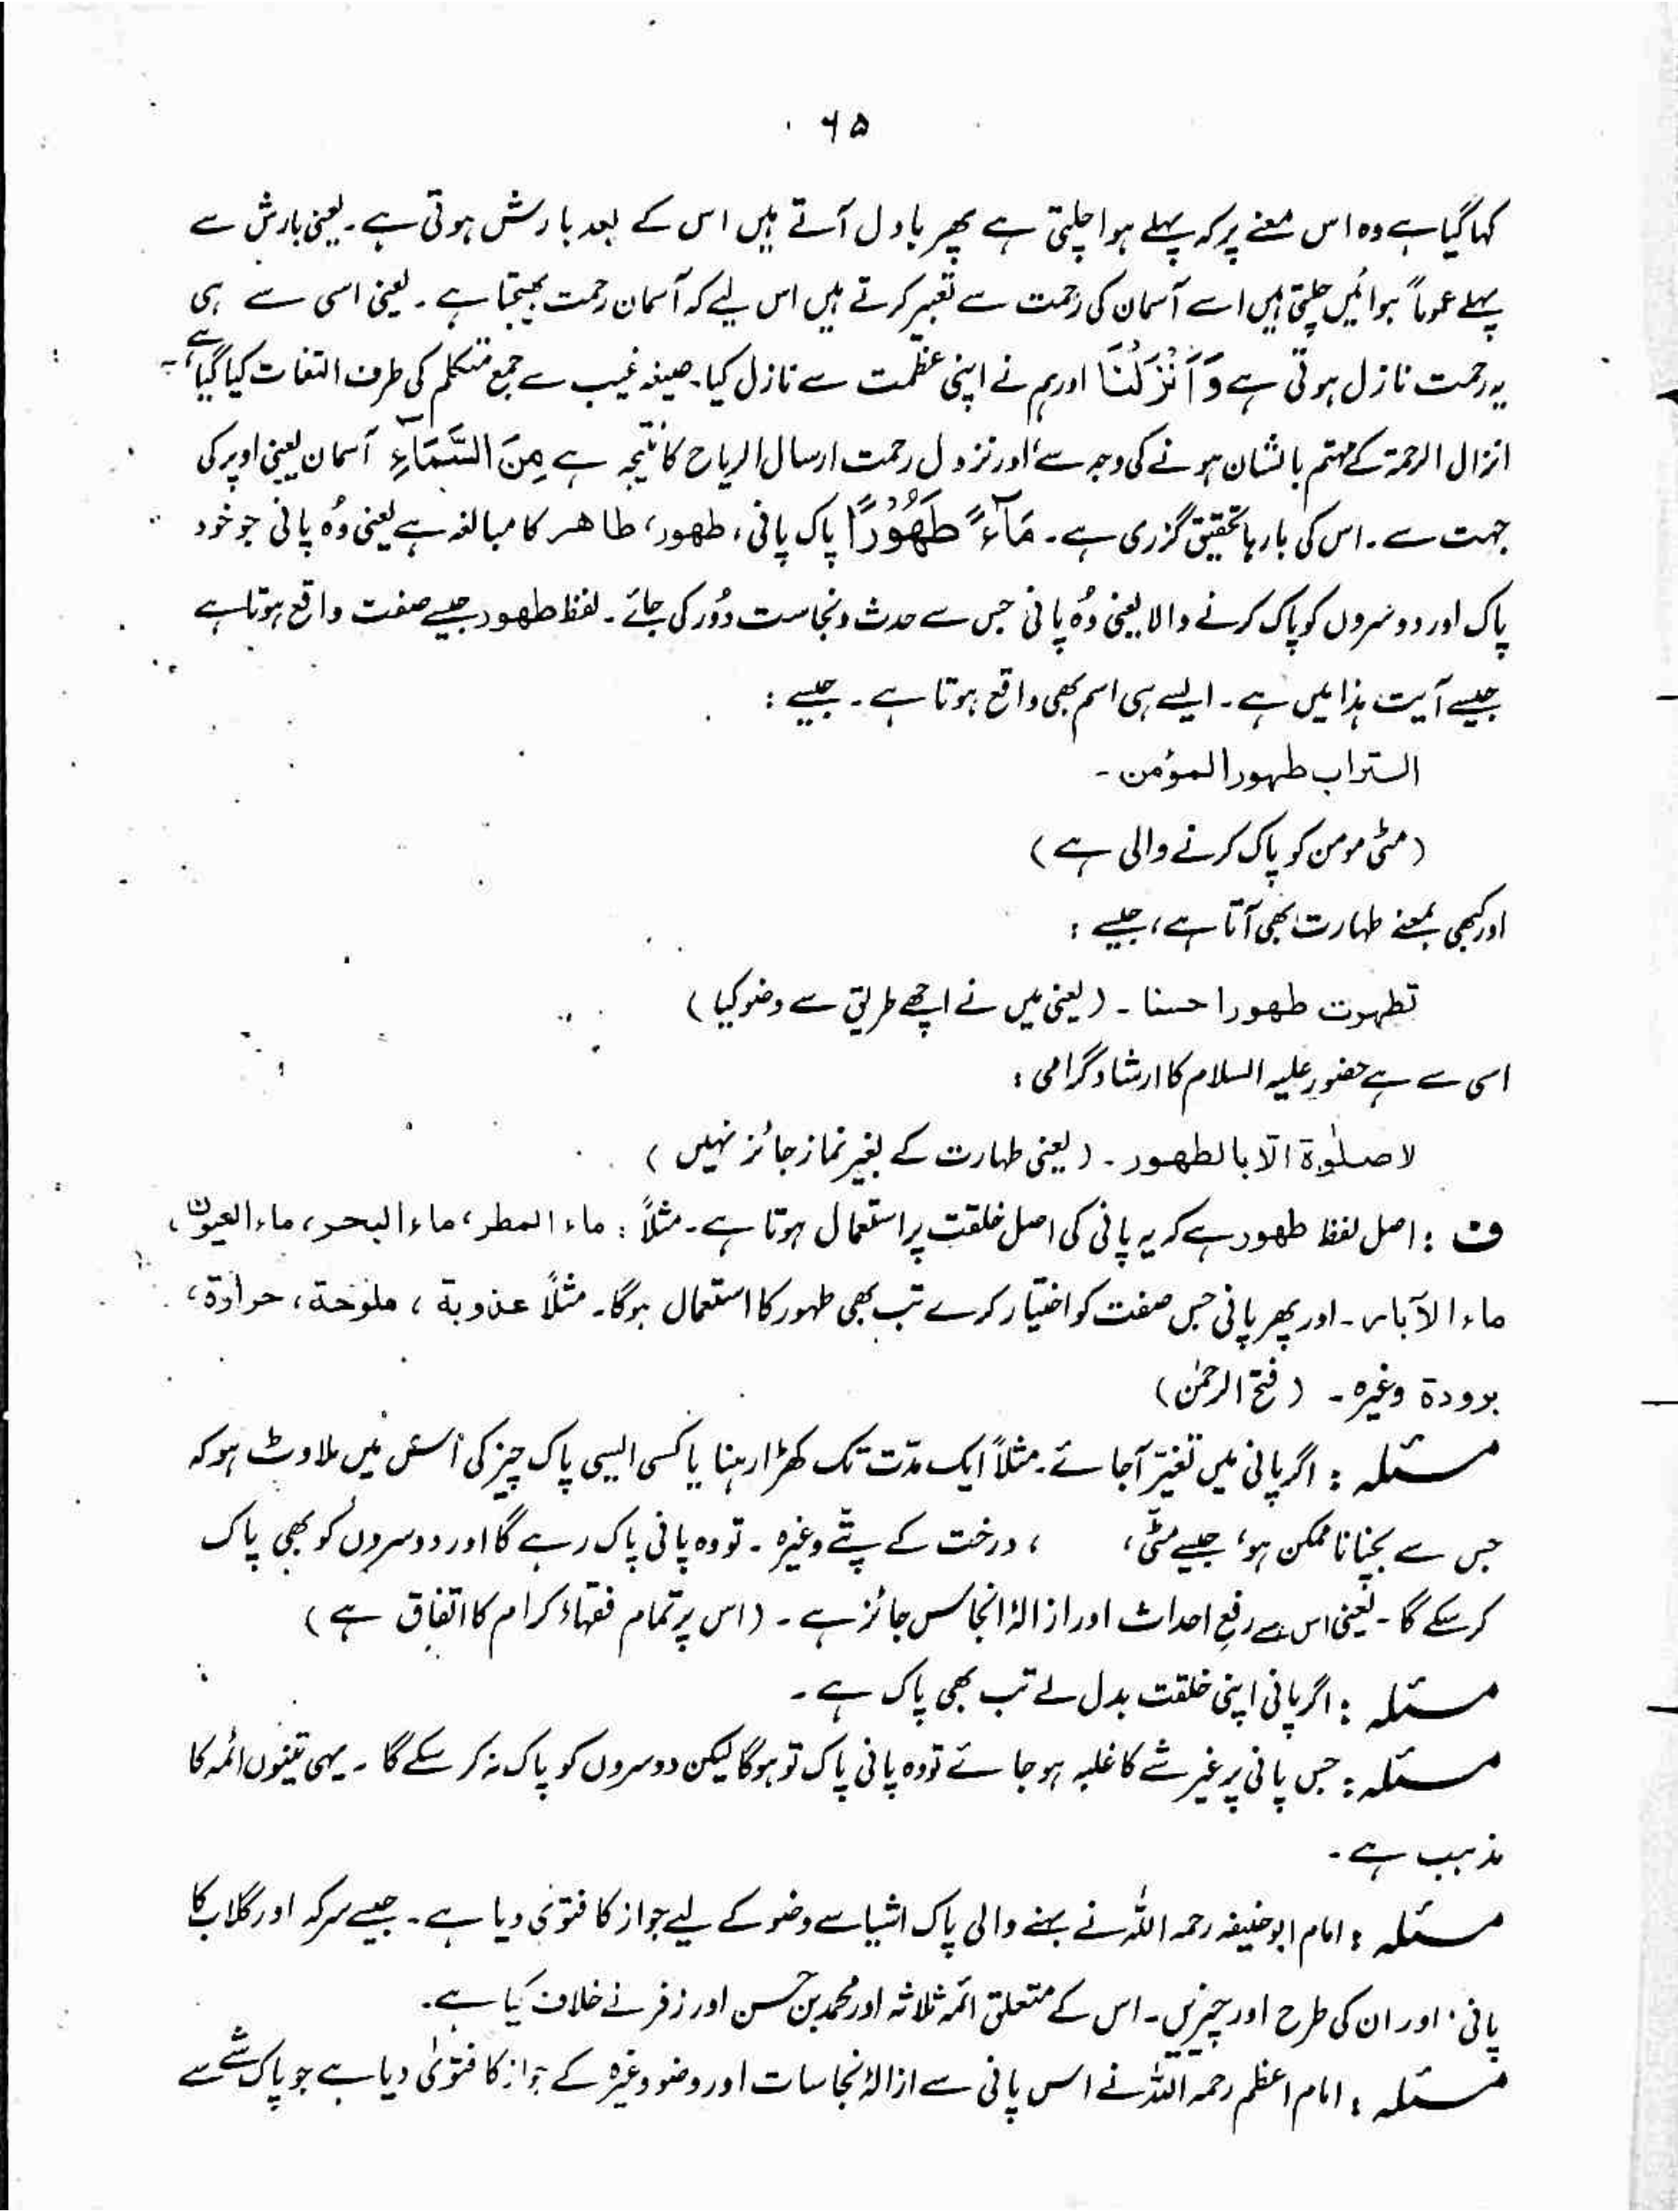 ۶۵
کہا گیا ہے وہ اس معنے پر کہ پہلے ہوا چلتی ہے پھر بادل آتے ہیں اس کے بعد بارش ہوتی ہے۔ یعنی بارش سے
پہلے عموماً ہوائیں چلتی ہیں اسے آسمان کی رحمت سے تعبیر کرتے ہیں اس لیے کہ آسمان رحمت بھیجتا ہے۔ یعنی اسی سے ہی
یہ رحمت نازل ہوتی ہے وَ اَنْزَلْنَا اور ہم نے اپنی عظمت سے نازل کیا۔ صیغہ غیب سے جمع متکلم کی طرف التفات کیا گیا ہے،
انزال الرحمۃ کے مہتم بالشان ہونے کی وجہ سے، اور نزول رحمت ارسال الریاح کا نتیجہ ہے مِنَ السَّمَآءِ آسمان یعنی اوپر کی
جہت سے۔ اس کی بارہا تحقیق گزری ہے۔ مَآءً طَهُوْرًا پاک پانی، طهور، طاهر کا مبالغہ ہے یعنی وُہ پانی جو خود
پاک اور دوسروں کو پاک کرنے والا یعنی وُہ پانی جس سے حدث و نجاست دُور کی جائے۔ لفظ طهور جیسے صفت واقع ہوتا ہے
جیسے آیت ہٰذا میں ہے۔ ایسے ہی اسم بھی واقع ہوتا ہے۔ جیسے :
التراب طہور المؤمن ۔
(مٹی مومن کو پاک کرنے والی ہے)
اور کبھی بمعنے طہارت بھی آتا ہے، جیسے :
تطہرت طهورا حسنا ۔ (یعنی میں نے اچھے طریق سے وضو کیا)
اسی سے ہے حضور علیہ السلام کا ارشاد گرامی :
لا صلٰوۃ الّا بالطهور ۔ (یعنی طہارت کے بغیر نماز جائز نہیں)
ف : اصل لفظ طهور ہے کہ یہ پانی کی اصل خلقت پر استعمال ہوتا ہے۔ مثلاً : ماء المطر، ماء البحر، ماء العیون،
ماء الآبار۔ اور پھر پانی جس صفت کو اختیار کرے تب بھی طہور کا استعمال ہوگا۔ مثلاً عذوبة ، ملوحة، حرارة،
برودة وغیرہ ۔ (فتح الرحمٰن)
مسئلہ : اگر پانی میں تغیّر آجائے۔ مثلاً ایک مدّت تک کھڑا رہنا یا کسی ایسی پاک چیز کی اس میں ملاوٹ ہو کہ
جس سے بچنا ناممکن ہو، جیسے مٹّی، ، درخت کے پتّے وغیرہ ۔ تو وہ پانی پاک رہے گا اور دوسروں کو بھی پاک
کر سکے گا۔ یعنی اس سے رفعِ احداث اور ازالۂ انجاس جائز ہے ۔ (اس پر تمام فقہاء کرام کا اتفاق ہے)
مسئلہ : اگر پانی اپنی خلقت بدل لے تب بھی پاک ہے ۔
مسئلہ : جس پانی پر غیر شے کا غلبہ ہو جائے تو وہ پانی پاک تو ہوگا لیکن دوسروں کو پاک نہ کر سکے گا ۔ یہی تینوں ائمہ کا
مذہب ہے ۔
مسئلہ : امام ابوحنیفہ رحمہ اللہ نے بہنے والی پاک اشیا سے وضو کے لیے جواز کا فتویٰ دیا ہے۔ جیسے سرکہ اور گلاب کا
پانی، اور ان کی طرح اور چیزیں۔ اس کے متعلق ائمہ ثلاثہ اور محمد بن حسن اور زفر نے خلاف کیا ہے۔
مسئلہ : امام اعظم رحمہ اللہ نے اس پانی سے ازالۂ نجاسات اور وضو وغیرہ کے جواز کا فتویٰ دیا ہے جو پاک شے سے